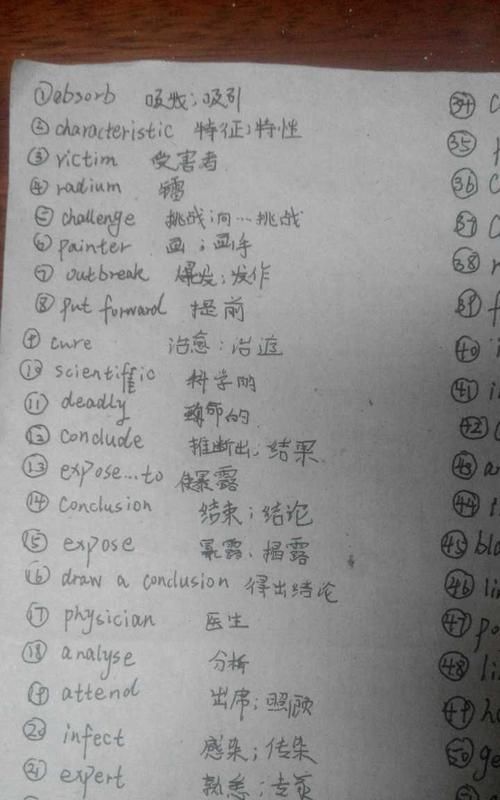 ①absorb 吸收；吸引
②characteristic 特征；特性
③victim 受害者
④radium 镭
⑤challenge 挑战；向…挑战
⑥painter 画；画手
⑦outbreak 爆发；发作
⑧put forward 提前
⑨cure 治愈；治疗
⑩scientific 科学的
⑪deadly 致命的
⑫conclude 推断出；结果
⑬expose...to 使暴露
⑭conclusion 结束；结论
⑮expose 暴露、揭露
⑯draw a conclusion 得出结论
⑰physician 医生
⑱analyse 分析
⑲attend 出席；照顾
⑳infect 感染；传染
㉑expert 熟悉；专
㉞ c
㉟
㊱ c
㊲ c
㊳ r
㊴ f
㊵ i
㊶ i
㊷ c
㊸ a
㊹
㊺ bla
㊻ li
㊼ po
㊽ li
㊾ h
㊿ ge